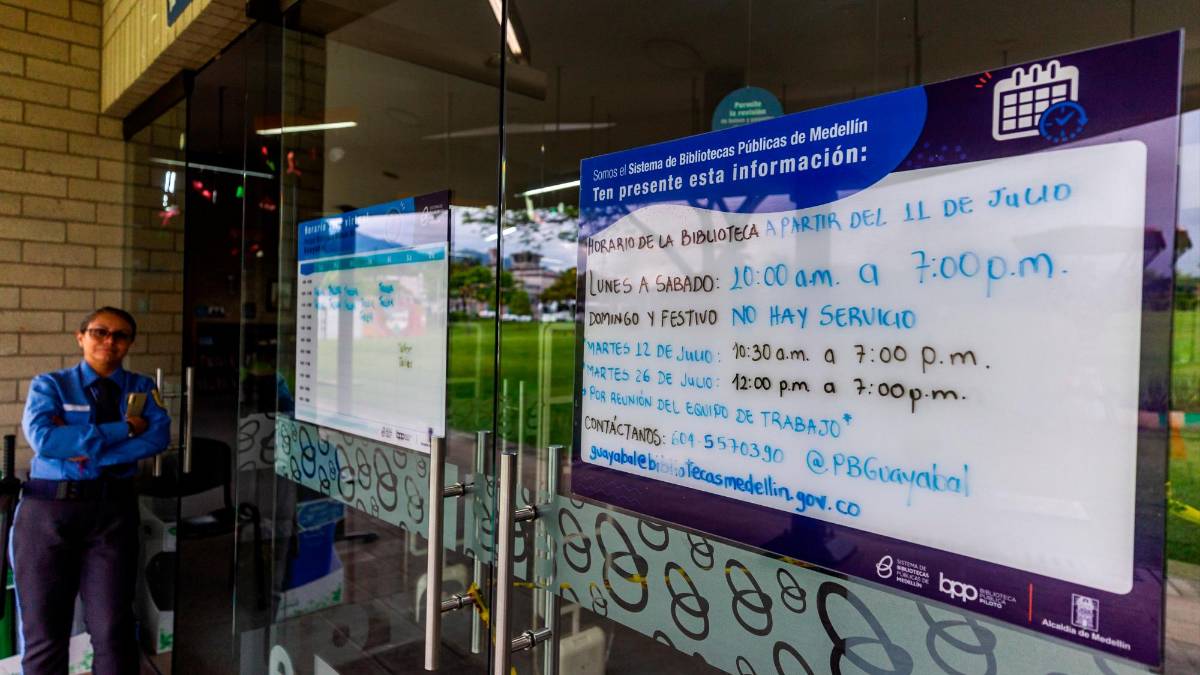 Permite
la revisión
Somos el Sistema de Bibliotecas Públicas de Medellín
Ten presente esta información:
HORARIO DE LA BIBLIOTECA A PARTIR DEL 11 DE JULIO
LUNES A SABADO: 10:00 a.m. a 7:00 p.m.
DOMINGO Y FESTIVO NO HAY SERVICIO
*MARTES 12 DE JULIO: 10:30 a.m. a 7:00 p.m.
*MARTES 26 DE JULIO: 12:00 p.m a 7:00 p.m.
*POR REUNIÓN DEL EQUIPO DE TRABAJO*
CONTÁCTANOS: 604-5570390 @PBGuayabal
guayabal@bibliotecasmedellin.gov.co
SISTEMA DE
BIBLIOTECAS
PÚBLICAS DE
MEDELLÍN
bpp BIBLIOTECA
PÚBLICA
PILOTO
Alcaldía de Medellín
Horario
bpp